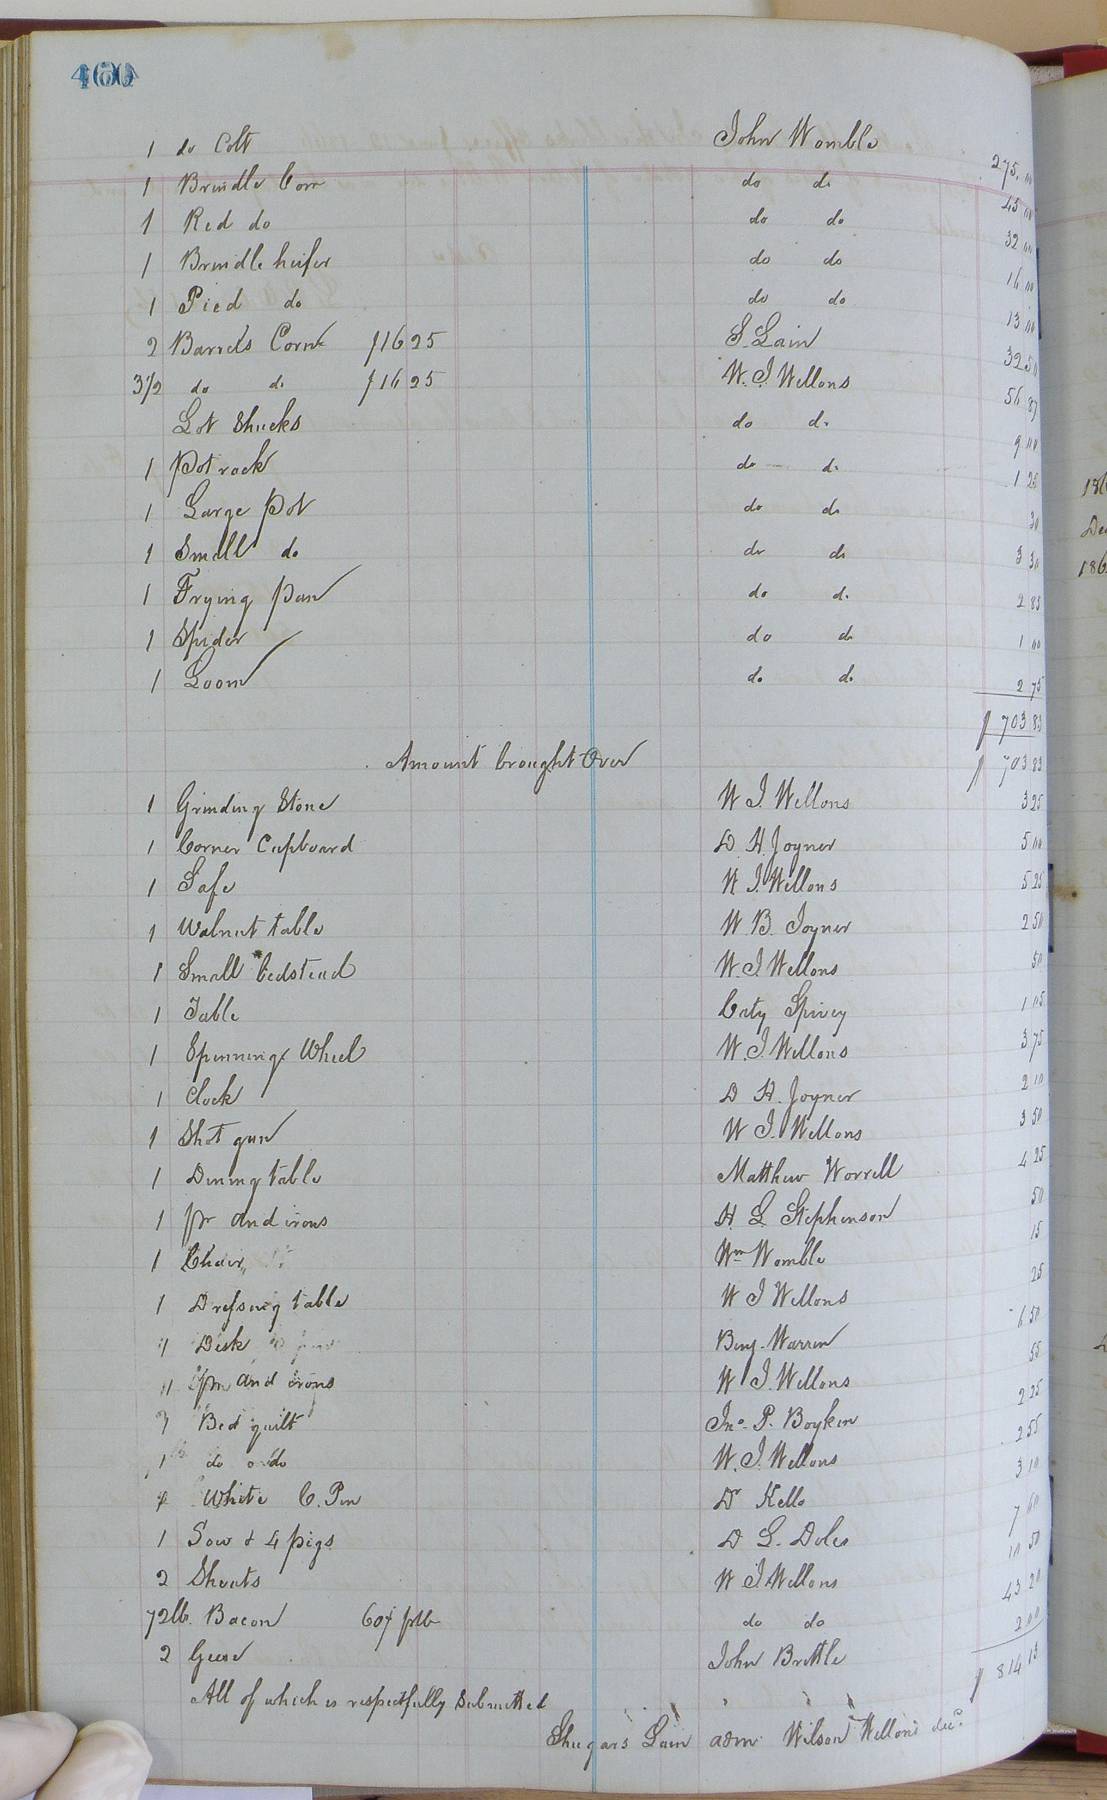 1 do Colt John Womble 275.00
1 Brindle Cow do do 45 00
1 Red do do do 32 00
1 Brindle heifer do do 16 00
1 Pied do do do 13 00
2 Barrels Corn $16 25 S. Lain 32 50
3 1/2 do do $16 25 W. J. Wellons 56 87
Lot Shucks do do 9 00
1 Pot rack do do 1 25
1 Large Pot do do 30
1 Small do do do 3 30
1 Frying Pan do do 2 83
1 Spider do do 1 00
1 Loom do do 2 75
$ 703 83
Amount brought Over $ 703 83
1 Grinding Stone W J. Wellons 3 25
1 Corner Cupboard D. H. Joyner 5 00
1 Safe W J. Wellons 5 25
1 Walnut table W. B. Joyner 2 50
1 Small bedstead W. J. Wellons 50
1 Table Caty Spivey 1 05
1 Spinning Wheel W. J. Wellons 3 75
1 Clock D H. Joyner 2 10
1 Shot gun W J. Wellons 3 50
1 Dining table Matthew Worrell 4 25
1 pr and irons H. L. Stephenson 50
1 Chair Wm Womble 15
1 Dressing table W J Wellons 25
1 Desk Benj. Warren 6 50
1 pr and irons W J. Wellons 55
1 Bed quilt Jno. P. Boykin 2 25
1 do do W. J. Wellons 2 55
White C. Pin Dr Kello 3 10
1 Sow & 4 pigs D L. Doles 7 60
2 Shoats W J Wellons 10 50
72lb. Bacon 60¢ plb do do 43 20
2 Geese John Brittle 2 00
$ 814 13
All of which is respectfully submitted
Shugars Lain adm. Wilson Wellons decd.